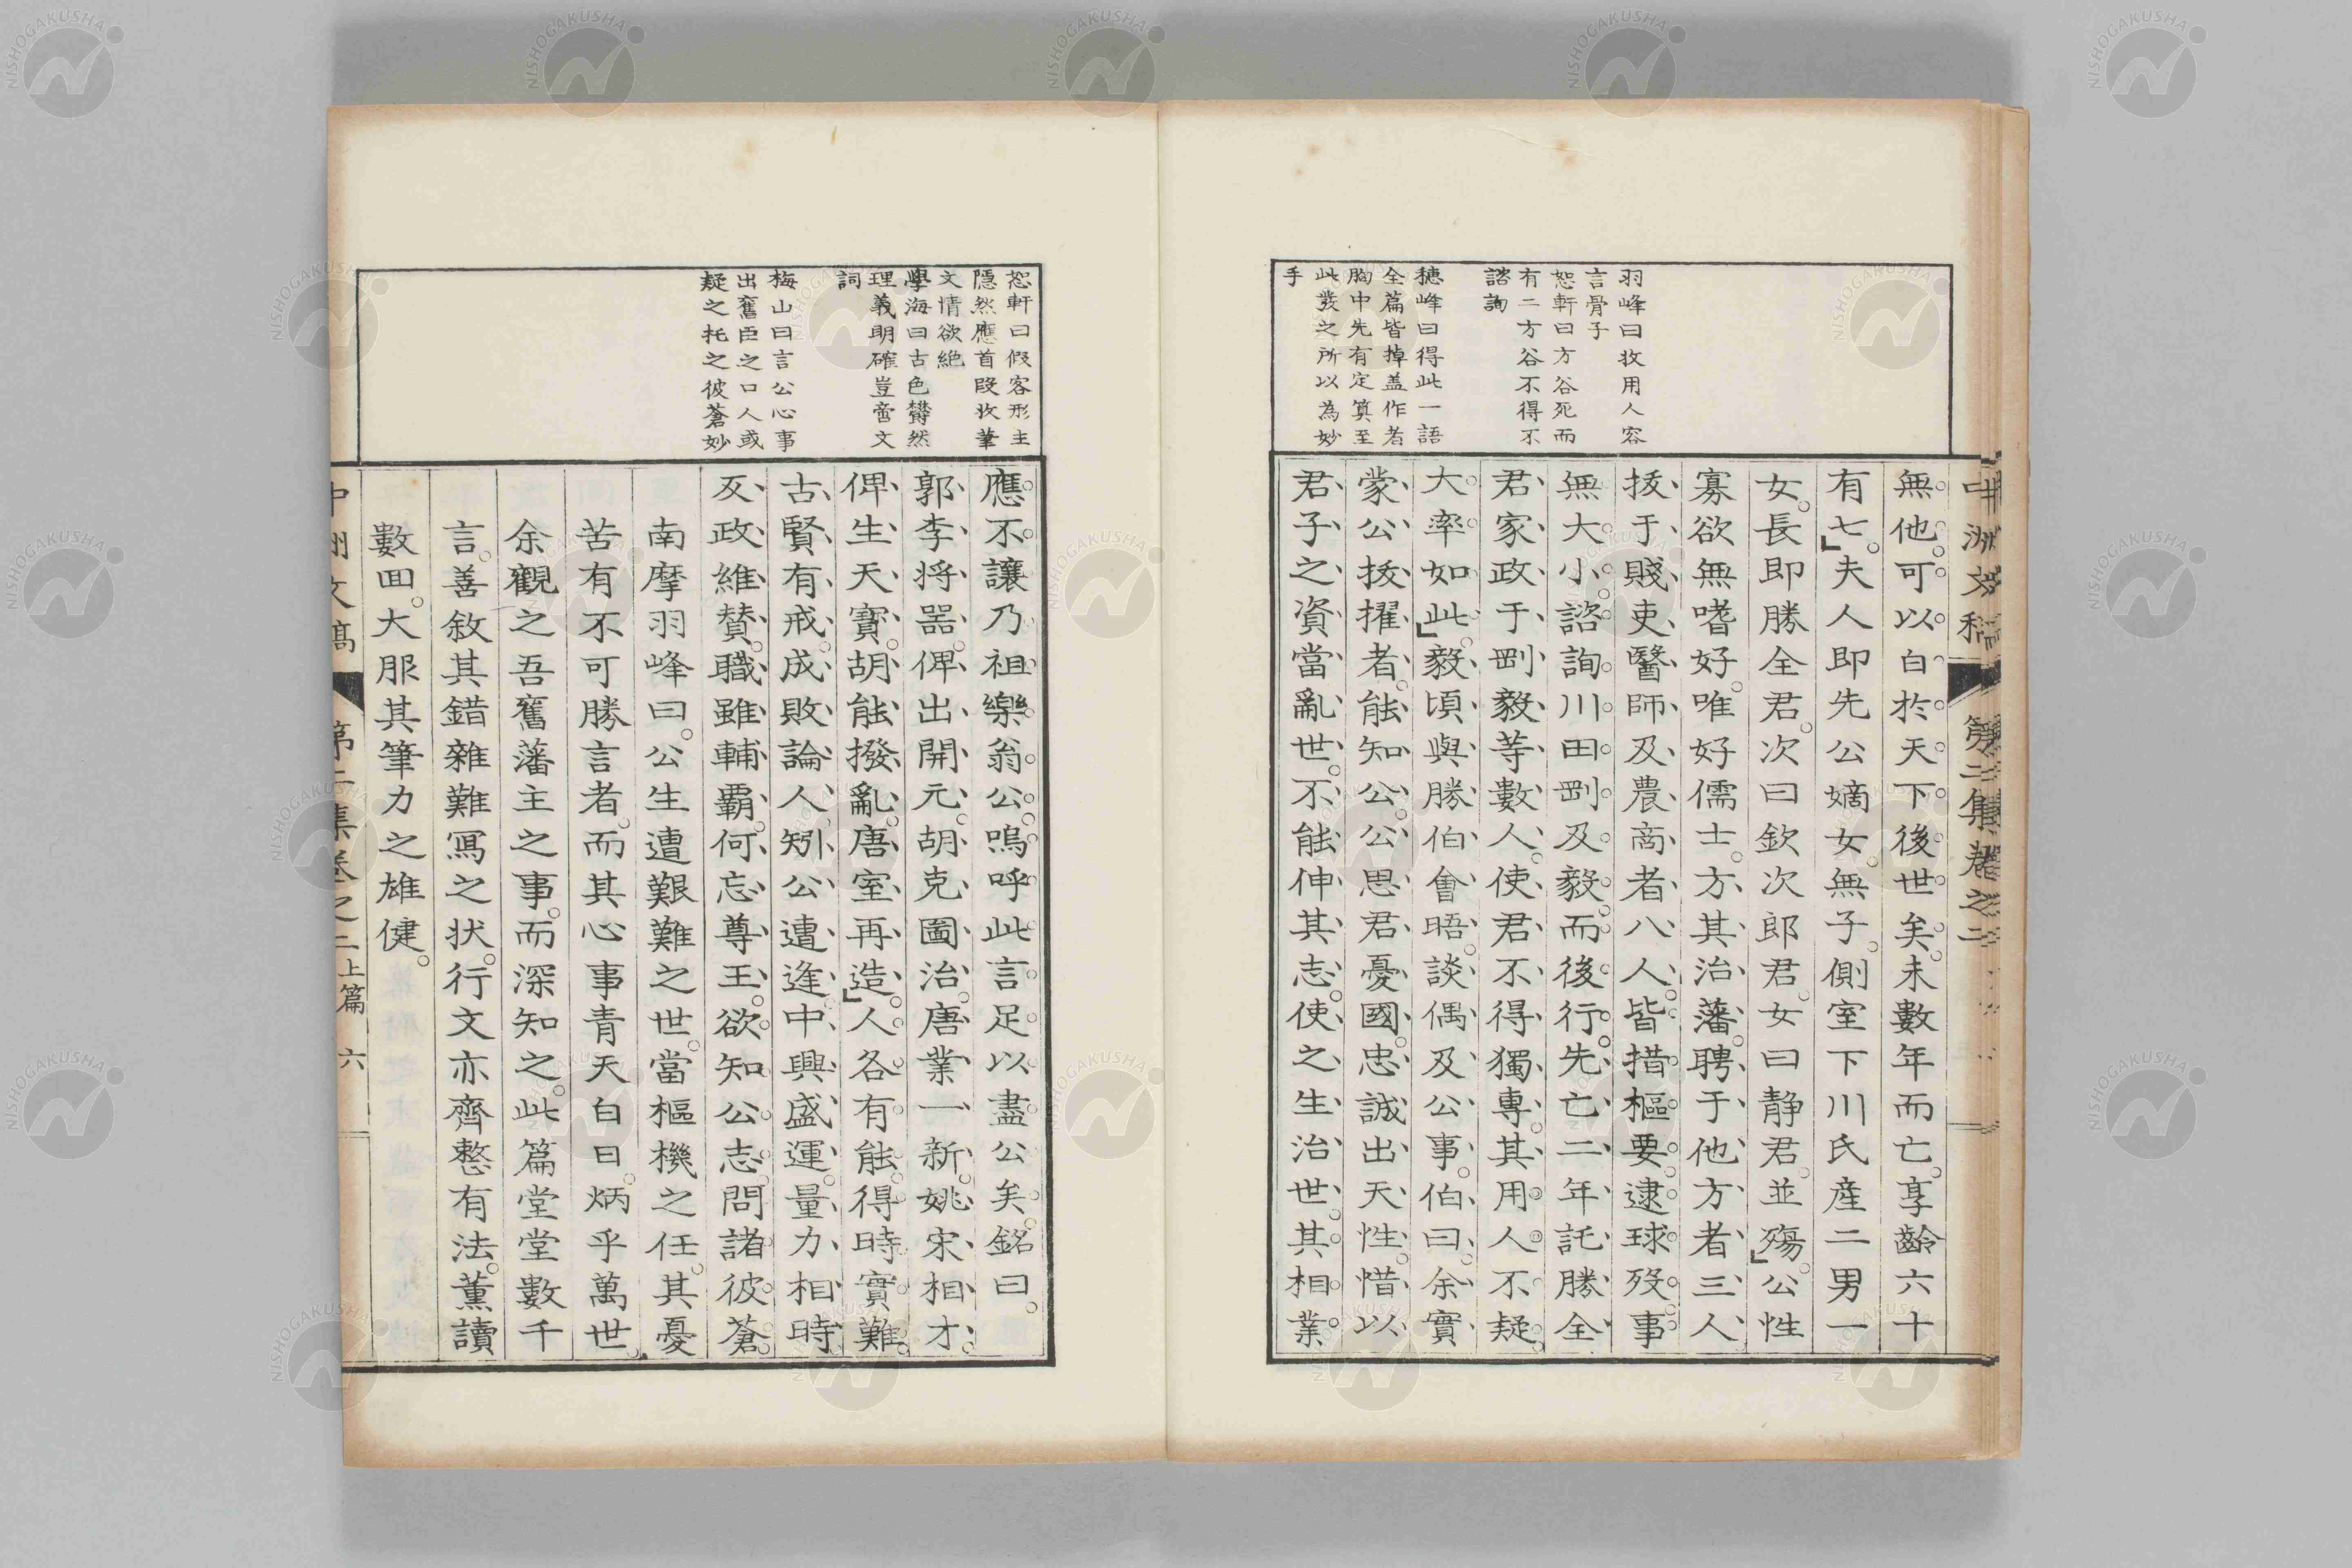 羽峰曰收用人容
言骨子
恕軒曰方谷死而
有二方谷不得不
諮詢
穗峰曰得此一語
全篇皆掉盖作者
胸中先有定筭至
此發之所以為妙
手
無他可以白於天下後世矣未數年而亡享齡六十
有七夫人即先公嫡女無子側室下川氏産二男一
女長即勝全君次曰欽次郎君女曰静君並殤公性
寡欲無嗜好唯好儒士方其治藩聘于他方者三人
拔于賤吏醫師及農商者八人皆措樞要逮球歿事
無大小諮詢川田剛及毅而後行先亡二年託勝全
君家政于剛毅等數人使君不得獨專其用人不疑
大率如此毅頃與勝伯會晤談偶及公事伯曰余實
蒙公拔擢者能知公公思君憂國忠誠出天性惜以
君子之資當亂世不能伸其志使之生治世其相業
恕軒曰假客形主
隱然應首段收筆
文情欲絶
學海曰古色欝然
理義明確豈啻文
詞
梅山曰言公心事
出奮臣之口人或
疑之托之彼蒼妙
應不讓乃祖樂翁公嗚呼此言足以盡公矣銘曰
郭李將噐俾出開元胡克圖治唐業一新姚宋相才
俾生天寶胡能撥亂唐室再造人各有能得時實難
古賢有戒成敗論人矧公遭逢中興盛運量力相時
反政維賛職雖輔霸何忘尊王欲知公志問諸彼蒼
南摩羽峰曰公生遭艱難之世當樞機之任其憂
苦有不可勝言者而其心事青天白日炳乎萬世
余觀之吾奮藩主之事而深知之此篇堂堂數千
言善敘其錯雜難寫之状行文亦齊整有法薫讀
數囬大服其筆力之雄健
中洲文稿 第二集卷之二 上篇 六
NISHOGAKUSHA